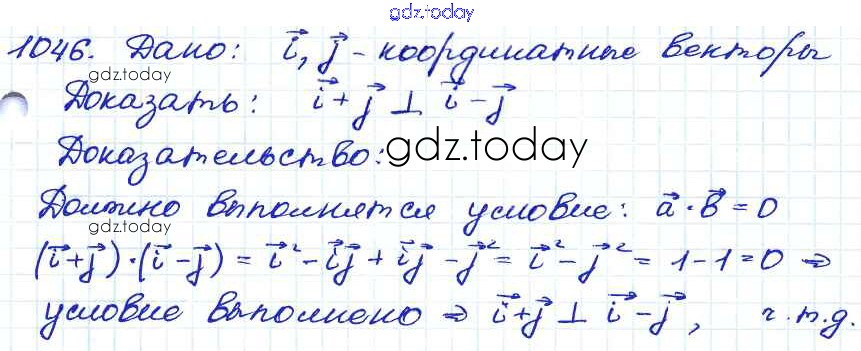 gdz.today
1046. Дано: i⃗, j⃗ - координатные векторы
gdz.today
Доказать: i⃗ + j⃗ ⊥ i⃗ - j⃗
Доказательство:
gdz.today
Должно выполнятся условие: a⃗ · b⃗ = 0
gdz.today
(i⃗ + j⃗) · (i⃗ - j⃗) = i⃗² - i⃗j⃗ + i⃗j⃗ - j⃗² = i⃗² - j⃗² = 1 - 1 = 0 ⇒
условие выполнено ⇒ i⃗ + j⃗ ⊥ i⃗ - j⃗, ч.т.д.